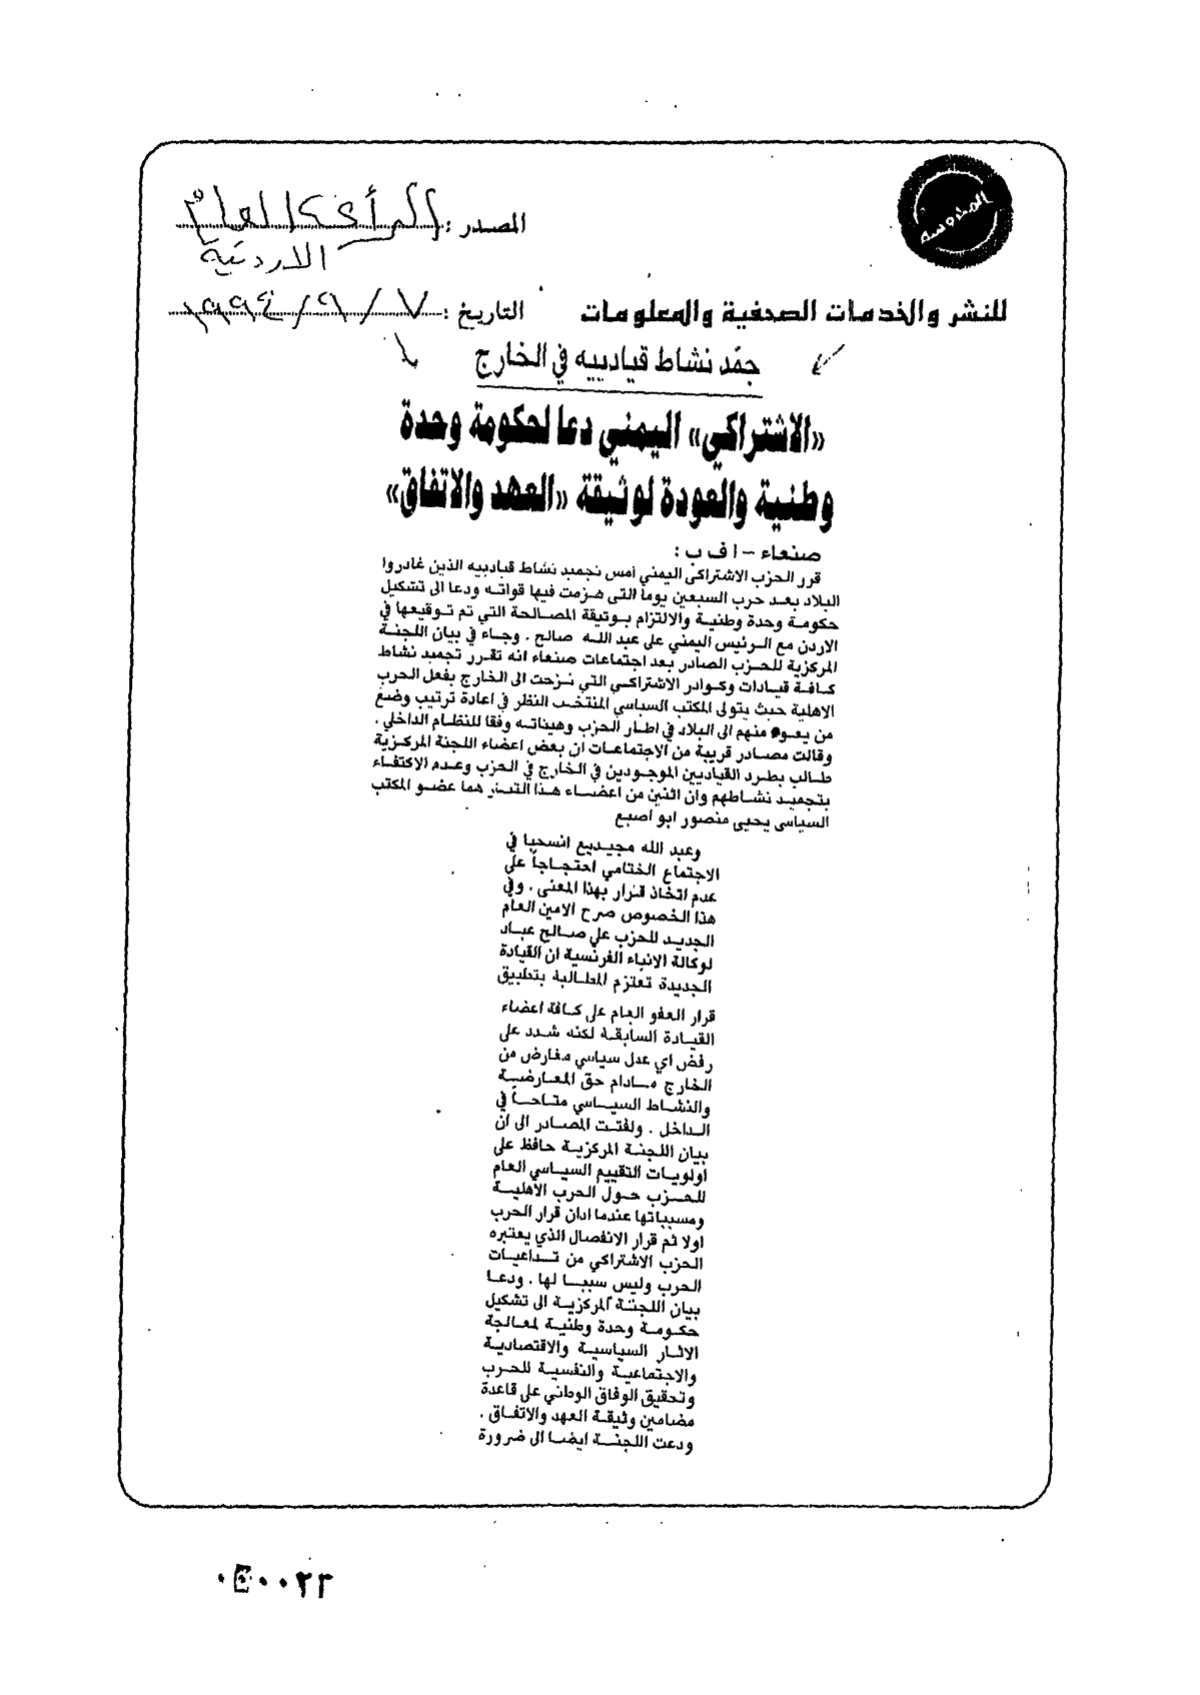 المحروسة
المصدر : الرأى العام
الاردنية
للنشر والخدمات الصحفية والمعلومات
التاريخ : ٧ / ٩ / ١٩٩٤
جمّد نشاط قيادييه في الخارج
«الاشتراكي» اليمني دعا لحكومة وحدة
وطنية والعودة لوثيقة «العهد والاتفاق»
صنعاء – ا ف ب :
قرر الحزب الاشتراكى اليمني أمس تجميد نشاط قيادييه الذين غادروا
البلاد بعد حرب السبعين يوما التى هزمت فيها قواته ودعا الى تشكيل
حكومة وحدة وطنية والالتزام بوثيقة المصالحة التي تم توقيعها في
الاردن مع الرئيس اليمني على عبد الله صالح . وجاء في بيان اللجنة
المركزية للحزب الصادر بعد اجتماعات صنعاء انه تقرر تجميد نشاط
كافة قيادات وكوادر الاشتراكي التي نزحت الى الخارج بفعل الحرب
الاهلية حيث يتولى المكتب السياسي المنتخب النظر في اعادة ترتيب وضع
من يعود منهم الى البلاد في اطار الحزب وهيئاته وفقا للنظام الداخلي .
وقالت مصادر قريبة من الاجتماعات ان بعض اعضاء اللجنة المركزية
طالب بطرد القياديين الموجودين في الخارج في الحزب وعدم الاكتفاء
بتجميد نشاطهم وان اثنين من اعضاء هذا التيار هما عضو المكتب
السياسى يحيى منصور ابو اصبع
وعبد الله مجيديع انسحبا في
الاجتماع الختامي احتجاجاً على
عدم اتخاذ قرار بهذا المعنى . وفي
هذا الخصوص صرح الامين العام
الجديد للحزب علي صالح عباد
لوكالة الانباء الفرنسية ان القيادة
الجديدة تعتزم المطالبة بتطبيق
قرار العفو العام على كافة اعضاء
القيادة السابقة لكنه شدد على
رفض اي عدل سياسي معارض من
الخارج مادام حق المعارضة
والنشاط السياسي متاحاً في
الداخل . ولفتت المصادر الى ان
بيان اللجنة المركزية حافظ على
اولويات التقييم السياسي العام
للحزب حول الحرب الأهلية
ومسبباتها عندما ادان قرار الحرب
اولا ثم قرار الانفصال الذي يعتبره
الحزب الاشتراكي من تداعيات
الحرب وليس سببا لها . ودعا
بيان اللجنة المركزية الى تشكيل
حكومة وحدة وطنية لمعالجة
الاثار السياسية والاقتصادية
والاجتماعية والنفسية للحرب
وتحقيق الوفاق الوطني على قاعدة
مضامين وثيقة العهد والاتفاق .
ودعت اللجنة ايضا الى ضرورة